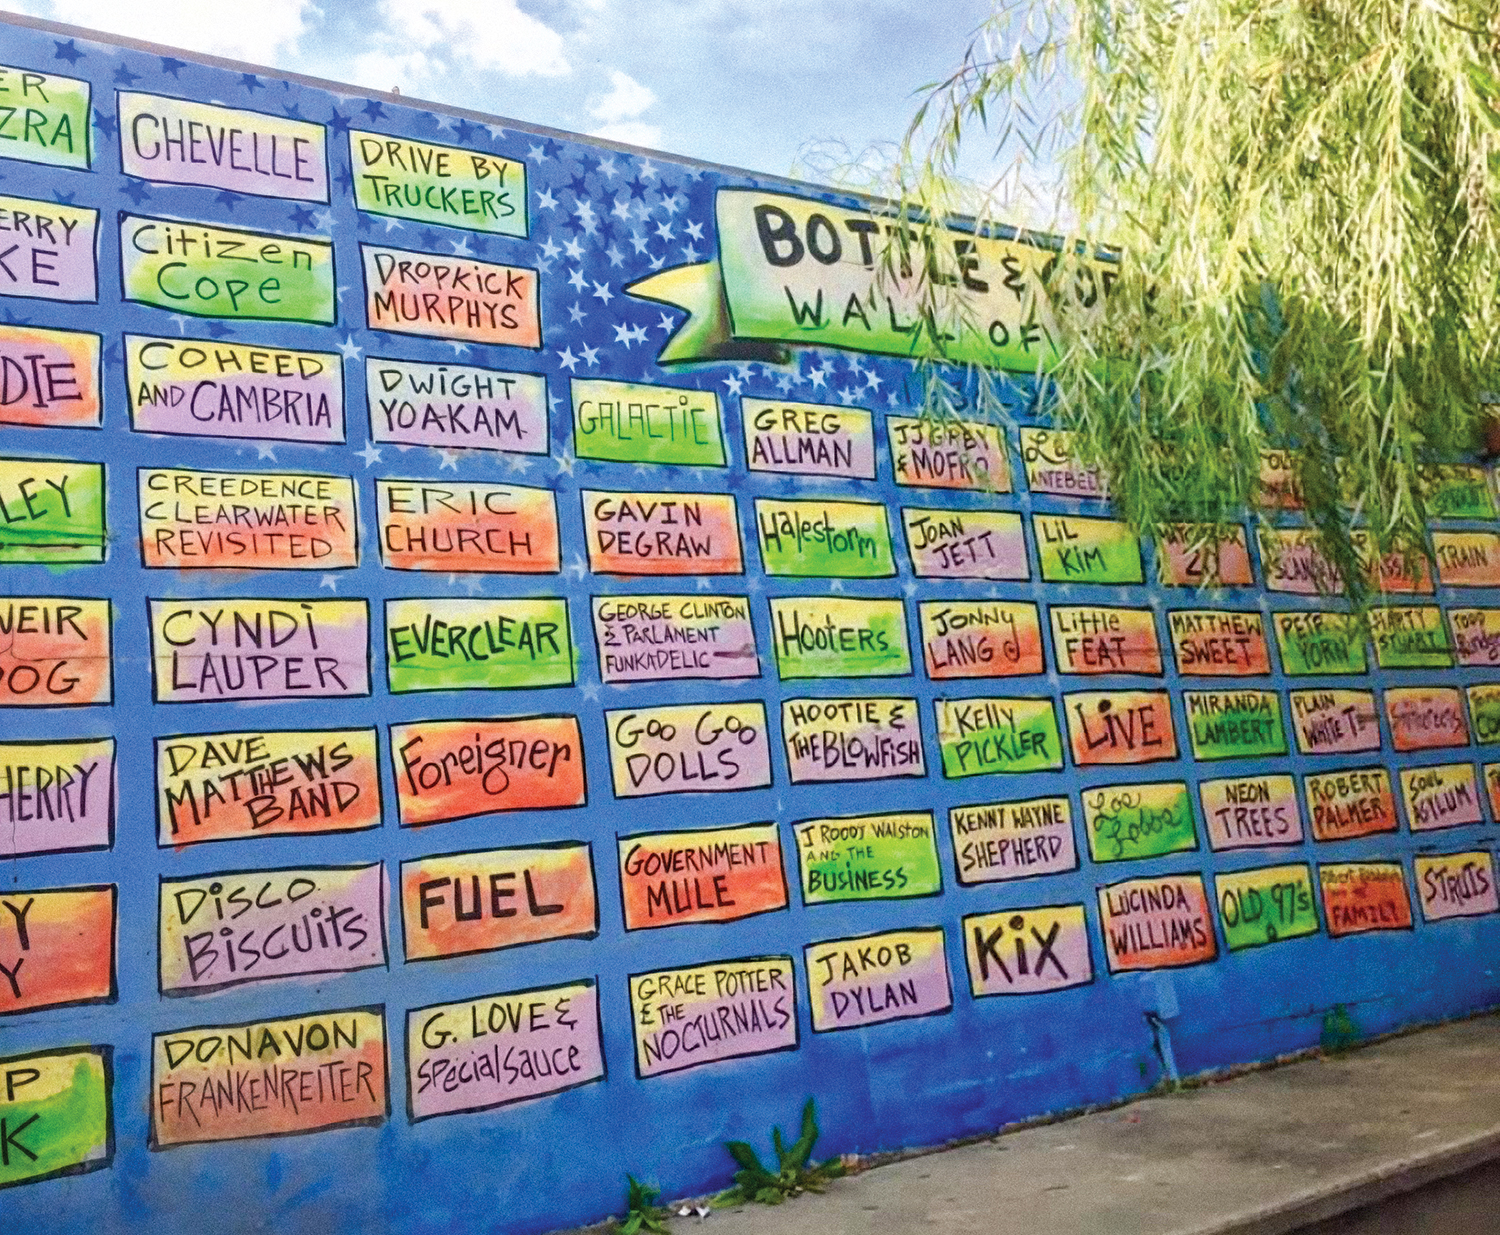 ER
ZRA
ERRY
KE
DIE
LEY
WEIR
DOG
HERRY
Y
Y
P
K
CHEVELLE
Citizen
Cope
COHEED
AND CAMBRIA
CREEDENCE
CLEARWATER
REVISITED
CYNDi
LAUPER
DAVE
MATTHEWS
BAND
DiSCO
BiSCUitS
DONAVON
FRANKENREITER
DRIVE BY
TRUCKERS
DROPKiCK
MURPHYS
DWiGHT
YOAKAM
ERIC
CHURCH
EVERCLEAR
Foreigner
FUEL
G. LOVE &
Special Sauce
BOTTLE &
WALL OF
GALACTiC
GAVIN
DEGRAW
GEORGE CLINTON
& PARLAMENT
FUNKADELIC
Goo Goo
DOLLS
GOVERNMENT
MULE
GRACE POTTER
& THE
NOCTURNALS
GREG
ALLMAN
Halestorm
HOOTERS
HOOTIE &
THE BLOWFISH
J RODDY WALSTON
AND THE
BUSINESS
JAKOB
DYLAN
JJ GREY
& MOFRO
JOAN
JETT
JONNY
LANG
Kelly
PiCKLER
KENNY WAYNE
SHEPHERD
KiX
ANTEBEL
LiL
KiM
Little
FEAT
LiVE
Los
Lobos
LUCINDA
WILLIAMS
20
MATTHEW
SWEET
MIRANDA
LAMBERT
NEON
TREES
OLD 97's
PETE
YORN
PLAIN
WHITE T's
ROBERT
PALMER
FAMILY
MARTY
STUART
SOUL
ASYLUM
STRUTS
TRAIN
TODD